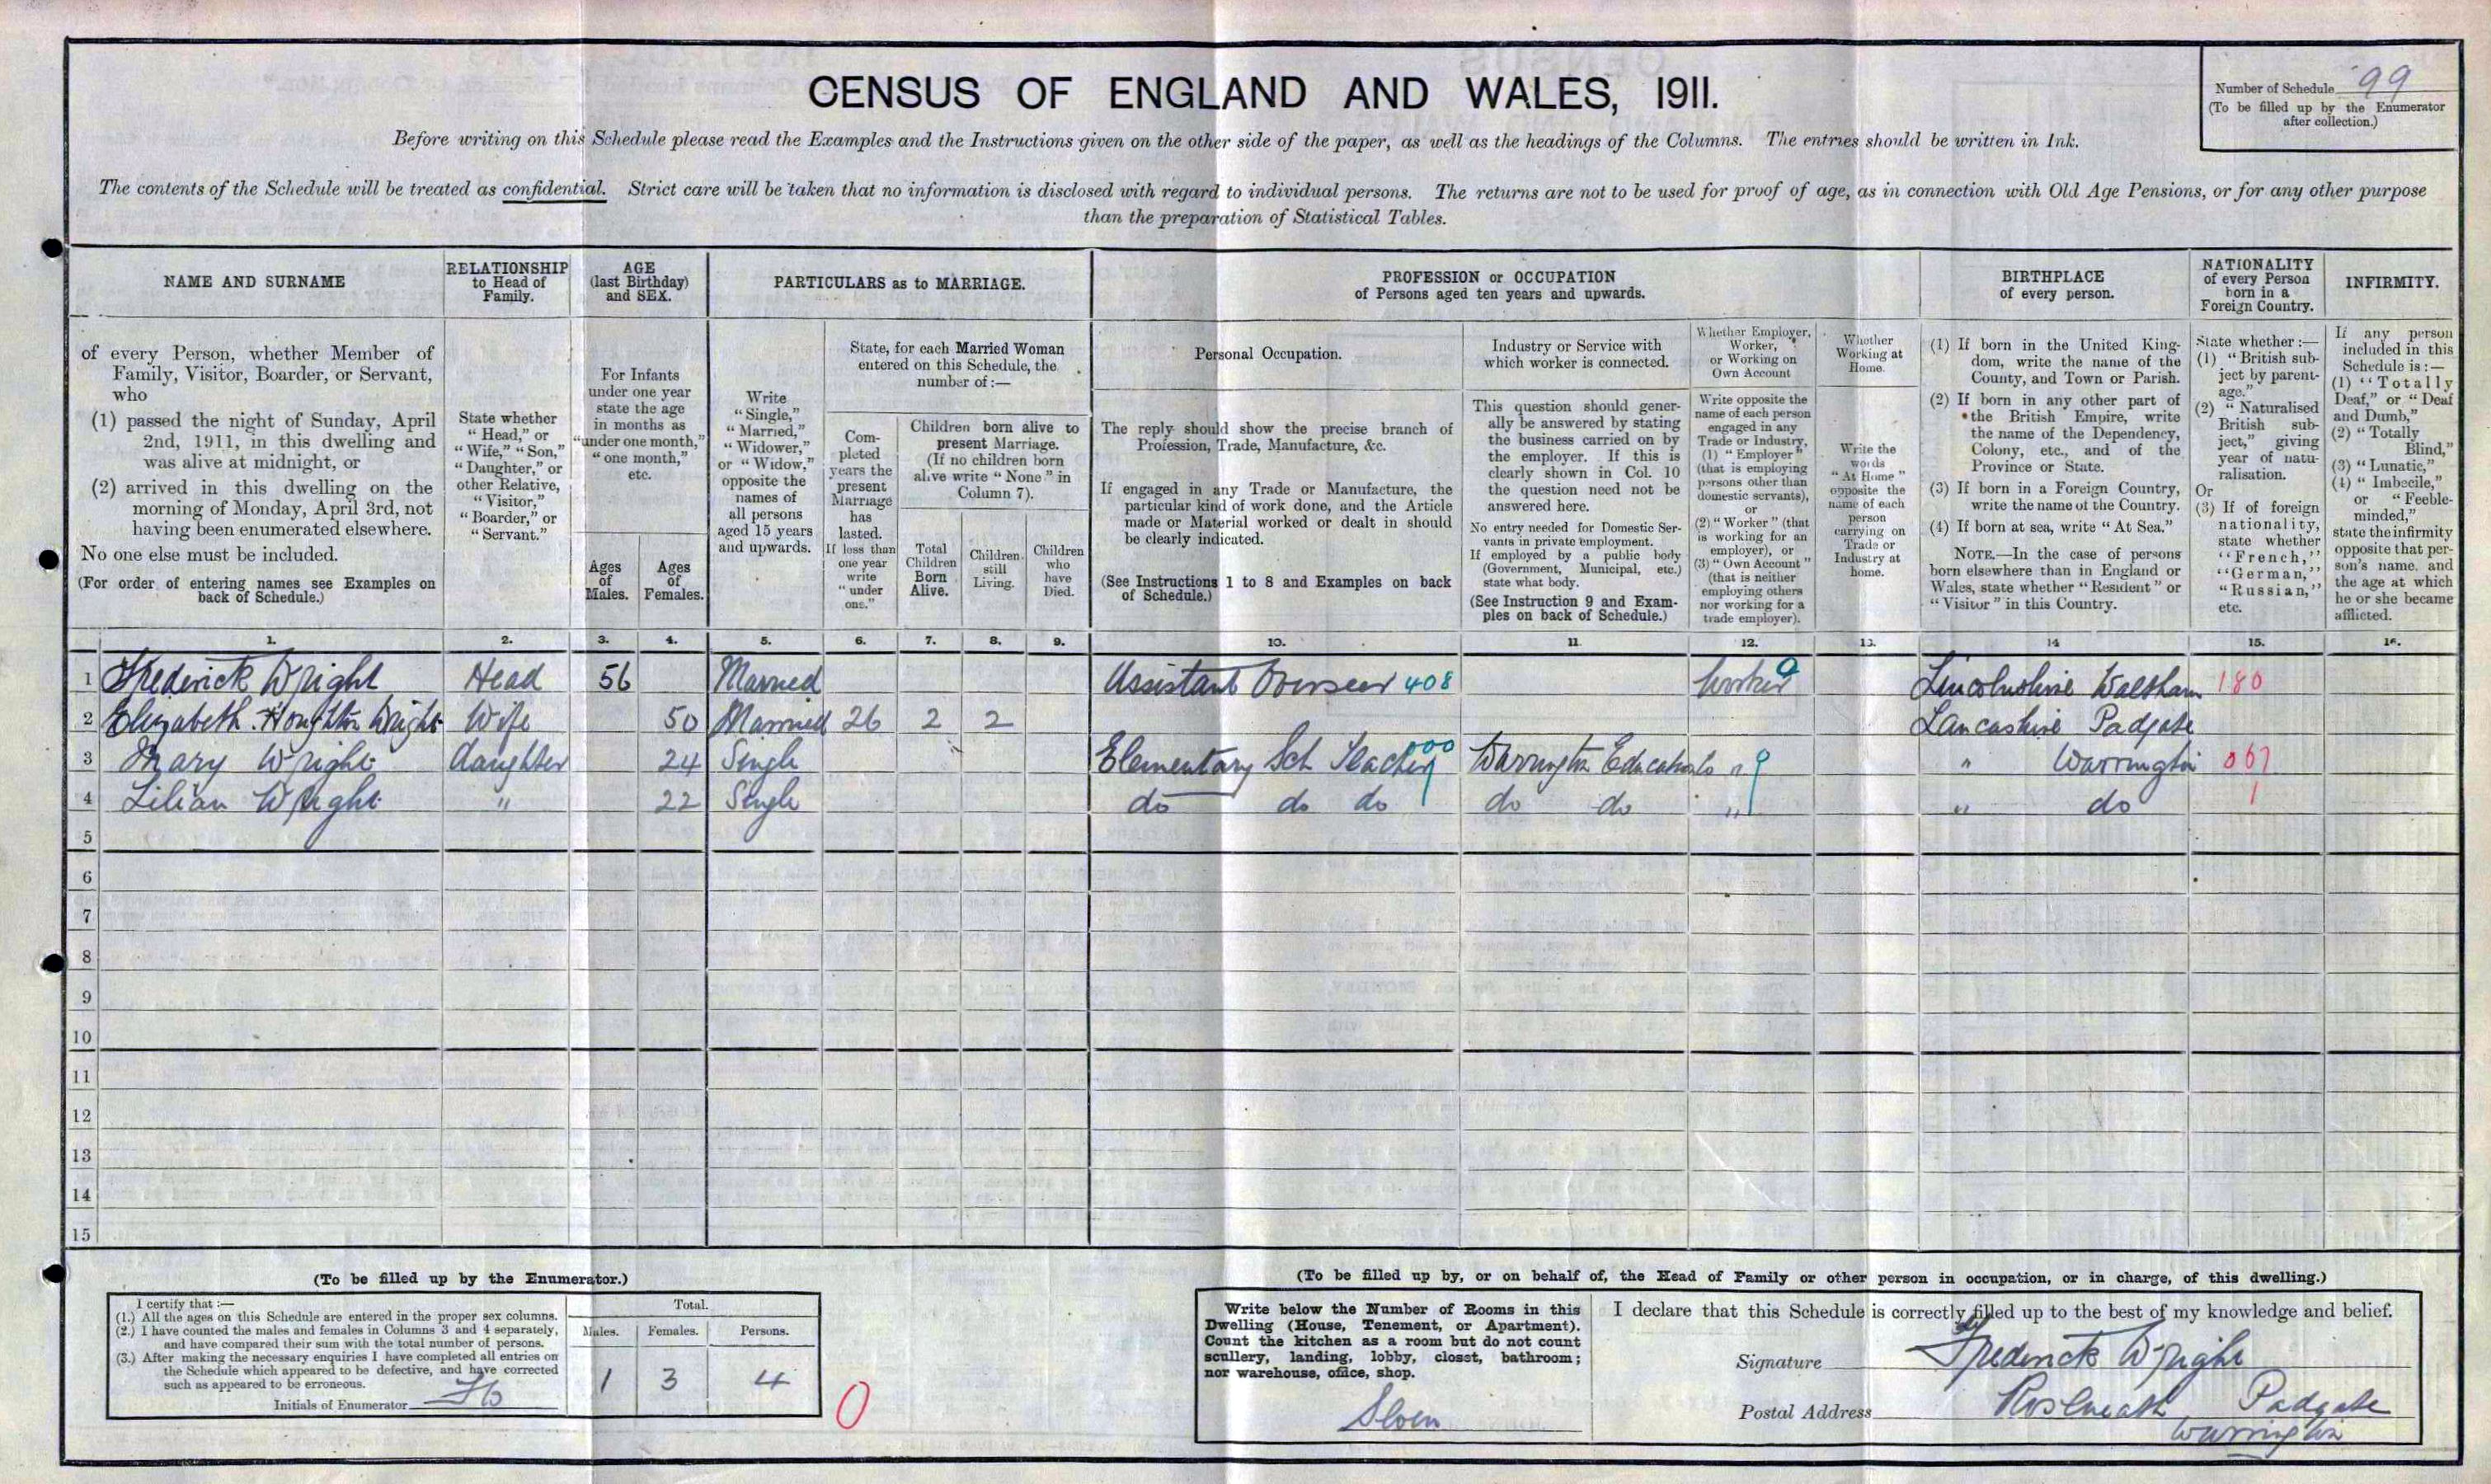 CENSUS OF ENGLAND AND WALES, 1911.
Number of Schedule 99
(To be filled up by the Enumerator
after collection.)
Before writing on this Schedule please read the Examples and the Instructions given on the other side of the paper, as well as the headings of the Columns. The entries should be written in Ink.
The contents of the Schedule will be treated as confidential. Strict care will be taken that no information is disclosed with regard to individual persons. The returns are not to be used for proof of age, as in connection with Old Age Pensions, or for any other purpose
than the preparation of Statistical Tables.
NAME AND SURNAME
of every Person, whether Member of
Family, Visitor, Boarder, or Servant,
who
(1) passed the night of Sunday, April
2nd, 1911, in this dwelling and
was alive at midnight, or
(2) arrived in this dwelling on the
morning of Monday, April 3rd, not
having been enumerated elsewhere.
No one else must be included.
(For order of entering names see Examples on
back of Schedule.)
RELATIONSHIP
to Head of
Family.
State whether
"Head," or
"Wife," "Son,"
"Daughter," or
other Relative,
"Visitor,"
"Boarder," or
"Servant."
AGE
(last Birthday)
and SEX.
For Infants
under one year
state the age
in months as
"under one month,"
"one month,"
etc.
Ages
of
Males.
Ages
of
Females.
PARTICULARS as to MARRIAGE.
Write
"Single,"
"Married,"
"Widower,"
or "Widow,"
opposite the
names of
all persons
aged 15 years
and upwards.
State, for each Married Woman
entered on this Schedule, the
number of:—
Com-
pleted
years the
present
Marriage
has
lasted.
If less than
one year
write
"under
one."
Children born alive to
present Marriage.
(If no children born
alive write "None" in
Column 7).
Total
Children
Born
Alive.
Children
still
Living.
Children
who
have
Died.
PROFESSION or OCCUPATION
of Persons aged ten years and upwards.
Personal Occupation.
The reply should show the precise branch of
Profession, Trade, Manufacture, &c.
If engaged in any Trade or Manufacture, the
particular kind of work done, and the Article
made or Material worked or dealt in should
be clearly indicated.
(See Instructions 1 to 8 and Examples on back
of Schedule.)
Industry or Service with
which worker is connected.
This question should gener-
ally be answered by stating
the business carried on by
the employer. If this is
clearly shown in Col. 10
the question need not be
answered here.
No entry needed for Domestic Ser-
vants in private employment.
If employed by a public body
(Government, Municipal, etc.)
state what body.
(See Instruction 9 and Exam-
ples on back of Schedule.)
Whether Employer,
Worker,
or Working on
Own Account
Write opposite the
name of each person
engaged in any
Trade or Industry,
(1) "Employer"
(that is employing
persons other than
domestic servants),
or
(2) "Worker" (that
is working for an
employer), or
(3) "Own Account"
(that is neither
employing others
nor working for a
trade employer).
Whether
Working at
Home.
Write the
words
"At Home"
opposite the
name of each
person
carrying on
Trade or
Industry at
home.
BIRTHPLACE
of every person.
(1) If born in the United King-
dom, write the name of the
County, and Town or Parish.
(2) If born in any other part of
the British Empire, write
the name of the Dependency,
Colony, etc., and of the
Province or State.
(3) If born in a Foreign Country,
write the name of the Country.
(4) If born at sea, write "At Sea."
NOTE.—In the case of persons
born elsewhere than in England or
Wales, state whether "Resident" or
"Visitor" in this Country.
NATIONALITY
of every Person
born in a
Foreign Country.
State whether:—
(1) "British sub-
ject by parent-
age."
(2) "Naturalised
British sub-
ject," giving
year of natu-
ralisation.
Or
(3) If of foreign
nationality,
state whether
"French,"
"German,"
"Russian,"
etc.
INFIRMITY.
If any person
included in this
Schedule is:—
(1) "Totally
Deaf," or "Deaf
and Dumb,"
(2) "Totally
Blind,"
(3) "Lunatic,"
(4) "Imbecile,"
or "Feeble-
minded,"
state the infirmity
opposite that per-
son's name, and
the age at which
he or she became
afflicted.
1. 2. 3. 4. 5. 6. 7. 8. 9. 10. 11. 12. 13. 14 15. 16.
1 Frederick Wright Head 56 Married Assistant Overseer 408 Worker 9 Lincolnshire Waltham 180
2 Elizabeth Houghton Wright Wife 50 Married 26 2 2 Lancashire Padgate
3 Mary Wright daughter 24 Single Elementary Sch Teacher 000 Warrington 9 " Warrington 067
4 Lilian Wright " 22 Single do do do do do " " do 1
5
6
7
8
9
10
11
12
13
14
15
(To be filled up by the Enumerator.)
I certify that:—
(1.) All the ages on this Schedule are entered in the proper sex columns.
(2.) I have counted the males and females in Columns 3 and 4 separately,
and have compared their sum with the total number of persons.
(3.) After making the necessary enquiries I have completed all entries on
the Schedule which appeared to be defective, and have corrected
such as appeared to be erroneous.
Initials of Enumerator
Total.
Males. Females. Persons.
1 3 4
0
(To be filled up by, or on behalf of, the Head of Family or other person in occupation, or in charge, of this dwelling.)
Write below the Number of Rooms in this
Dwelling (House, Tenement, or Apartment).
Count the kitchen as a room but do not count
scullery, landing, lobby, closet, bathroom;
nor warehouse, office, shop.
Seven
I declare that this Schedule is correctly filled up to the best of my knowledge and belief.
Signature Frederick Wright
Postal Address Roseneath Padgate
Warrington